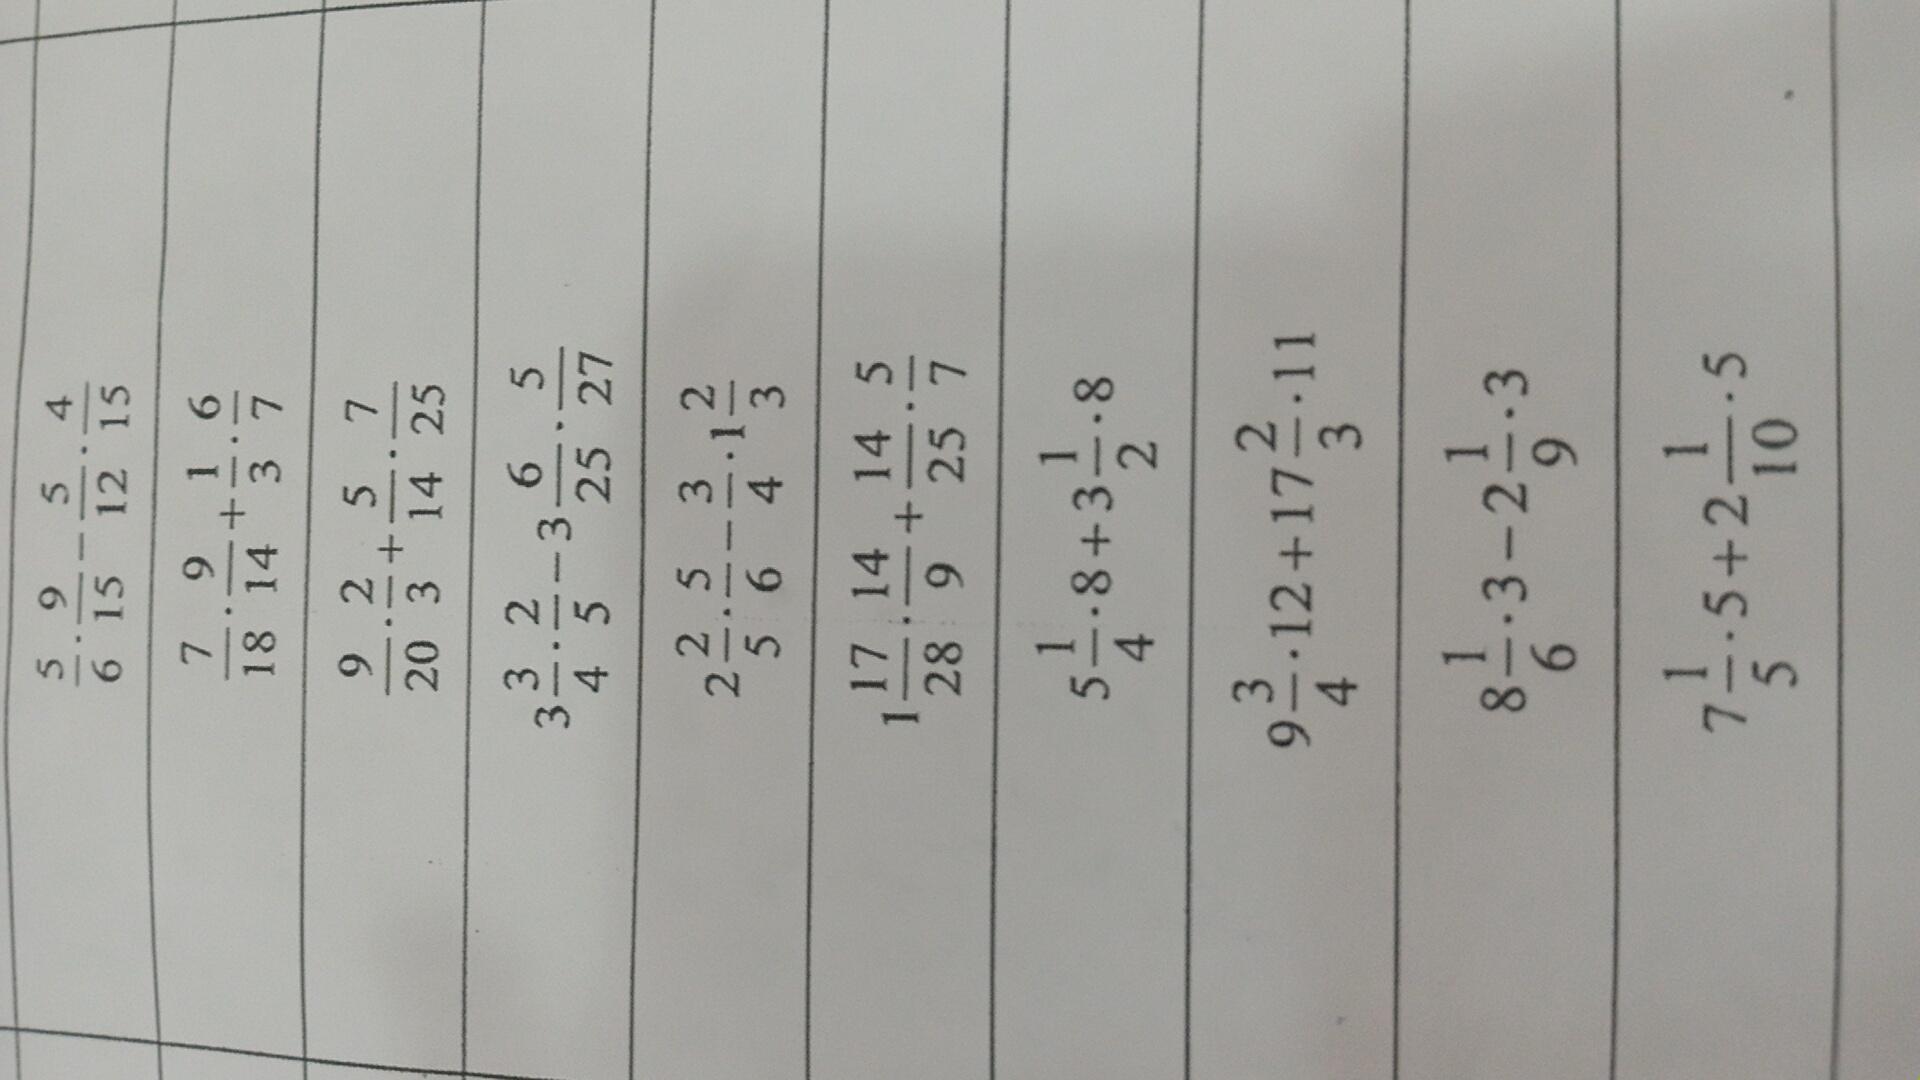 5/6 · 9/15 − 5/12 · 4/15
7/18 · 9/14 + 1/3 · 6/7
9/20 · 2/3 + 5/14 · 7/25
3 3/4 · 2/5 − 3 6/25 · 5/27
2 2/5 · 5/6 − 3/4 · 1 2/3
1 17/28 · 14/9 + 14/25 · 5/7
5 1/4 · 8 + 3 1/2 · 8
9 3/4 · 12 + 17 2/3 · 11
8 1/6 · 3 − 2 1/9 · 3
7 1/5 · 5 + 2 1/10 · 5